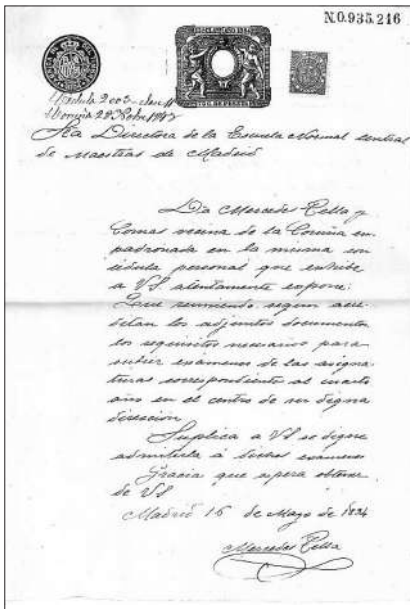 N.0.935.216
Sra Directora de la Escuela Normal central
de Maestras de Madrid
Dña Mercedes Tella y
Comas vecina de la Coruña em-
padronada en la misma con
cédula personal que exhibe
a VS atentamente expone:
Que reuniendo segun acre-
ditan los adjuntos documentos
los requisitos necesarios para
sufrir exámenes de las asigna-
turas correspondientes al cuarto
año en el centro de su digna
dirección
Suplica a VS se digne
admitirla á dichos exámenes
Gracia que espera obtener
de VS
Madrid 16 de Mayo de 1894
Mercedes Tella